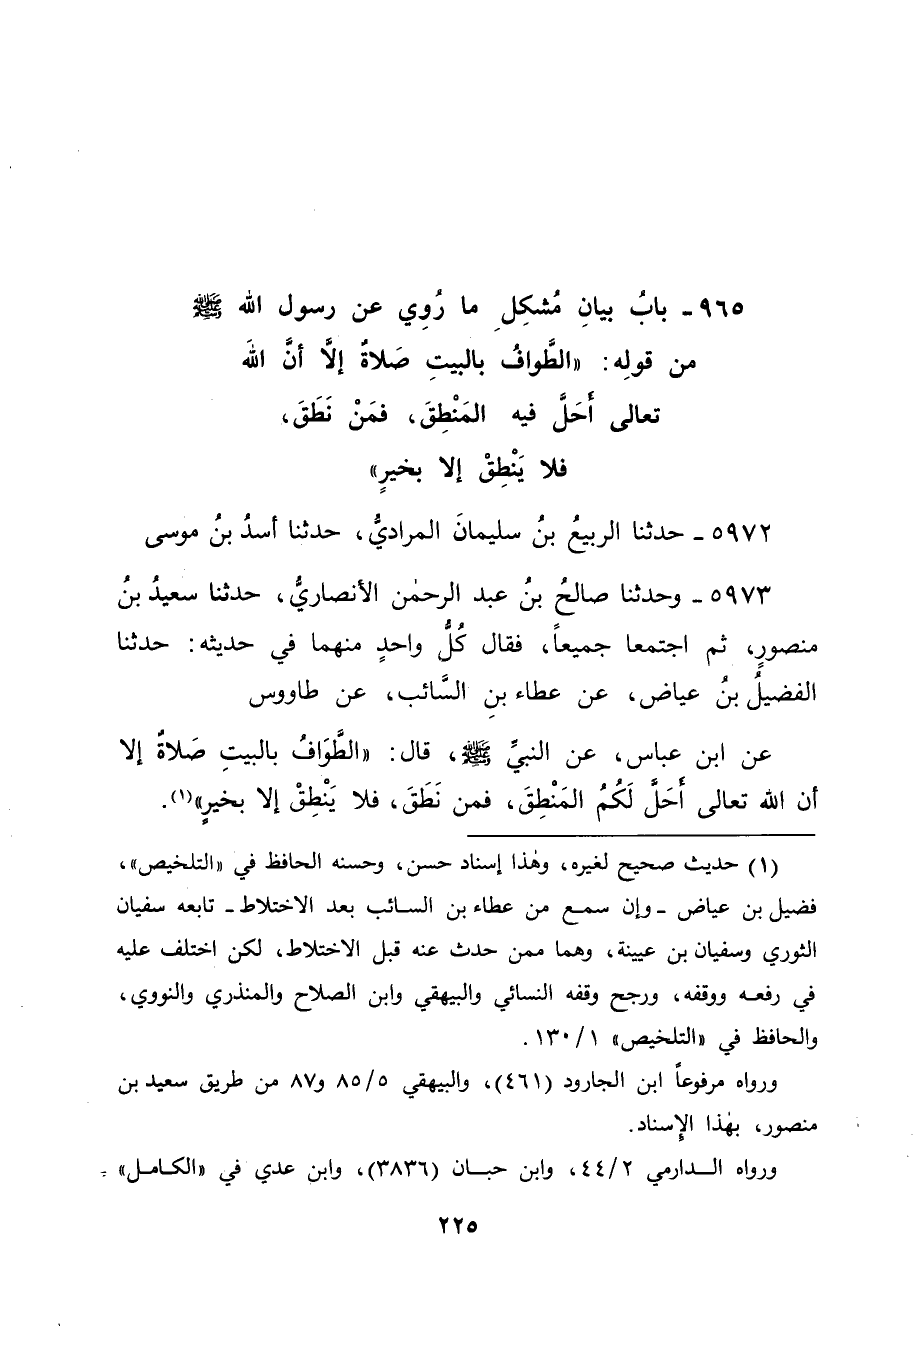 ٩٦٥ ـ بابُ بيانِ مُشكِلِ ما رُوِي عن رسول الله ﷺ
من قولِه: «الطَّوافُ بالبيتِ صَلاةٌ إلَّا أنَّ اللهَ
تعالى أَحَلَّ فيه المَنْطِقَ، فمَنْ نَطَقَ،
فلا يَنْطِقْ إلا بخيرٍ»
٥٩٧٢ ـ حدثنا الربيعُ بنُ سليمانَ المراديُّ، حدثنا أسدُ بنُ موسى
٥٩٧٣ ـ وحدثنا صالحُ بنُ عبد الرحمٰن الأنصاريُّ، حدثنا سعيدُ بنُ
منصورٍ، ثم اجتمعا جميعاً، فقال كُلُّ واحدٍ منهما في حديثه: حدثنا
الفضيلُ بنُ عياض، عن عطاء بنِ السَّائب، عن طاووس
عن ابن عباس، عن النبيِّ ﷺ، قال: «الطَّوَافُ بالبيتِ صَلاةٌ إلا
أن الله تعالى أَحَلَّ لَكُمُ المَنْطِقَ، فمن نَطَقَ، فلا يَنْطِقْ إلا بخيرٍ»(١).
(١) حديث صحيح لغيره، وهٰذا إسناد حسن، وحسنه الحافظ في «التلخيص»،
فضيل بن عياض ـ وإن سمع من عطاء بن السائب بعد الاختلاط ـ تابعه سفيان
الثوري وسفيان بن عيينة، وهما ممن حدث عنه قبل الاختلاط، لكن اختلف عليه
في رفعه ووقفه، ورجح وقفه النسائي والبيهقي وابن الصلاح والمنذري والنووي،
والحافظ في «التلخيص» ١٣٠/١.
ورواه مرفوعاً ابن الجارود (٤٦١)، والبيهقي ٨٥/٥ و٨٧ من طريق سعيد بن
منصور، بهٰذا الإسناد.
ورواه الدارمي ٤٤/٢، وابن حبان (٣٨٣٦)، وابن عدي في «الكامل» =
٢٢٥